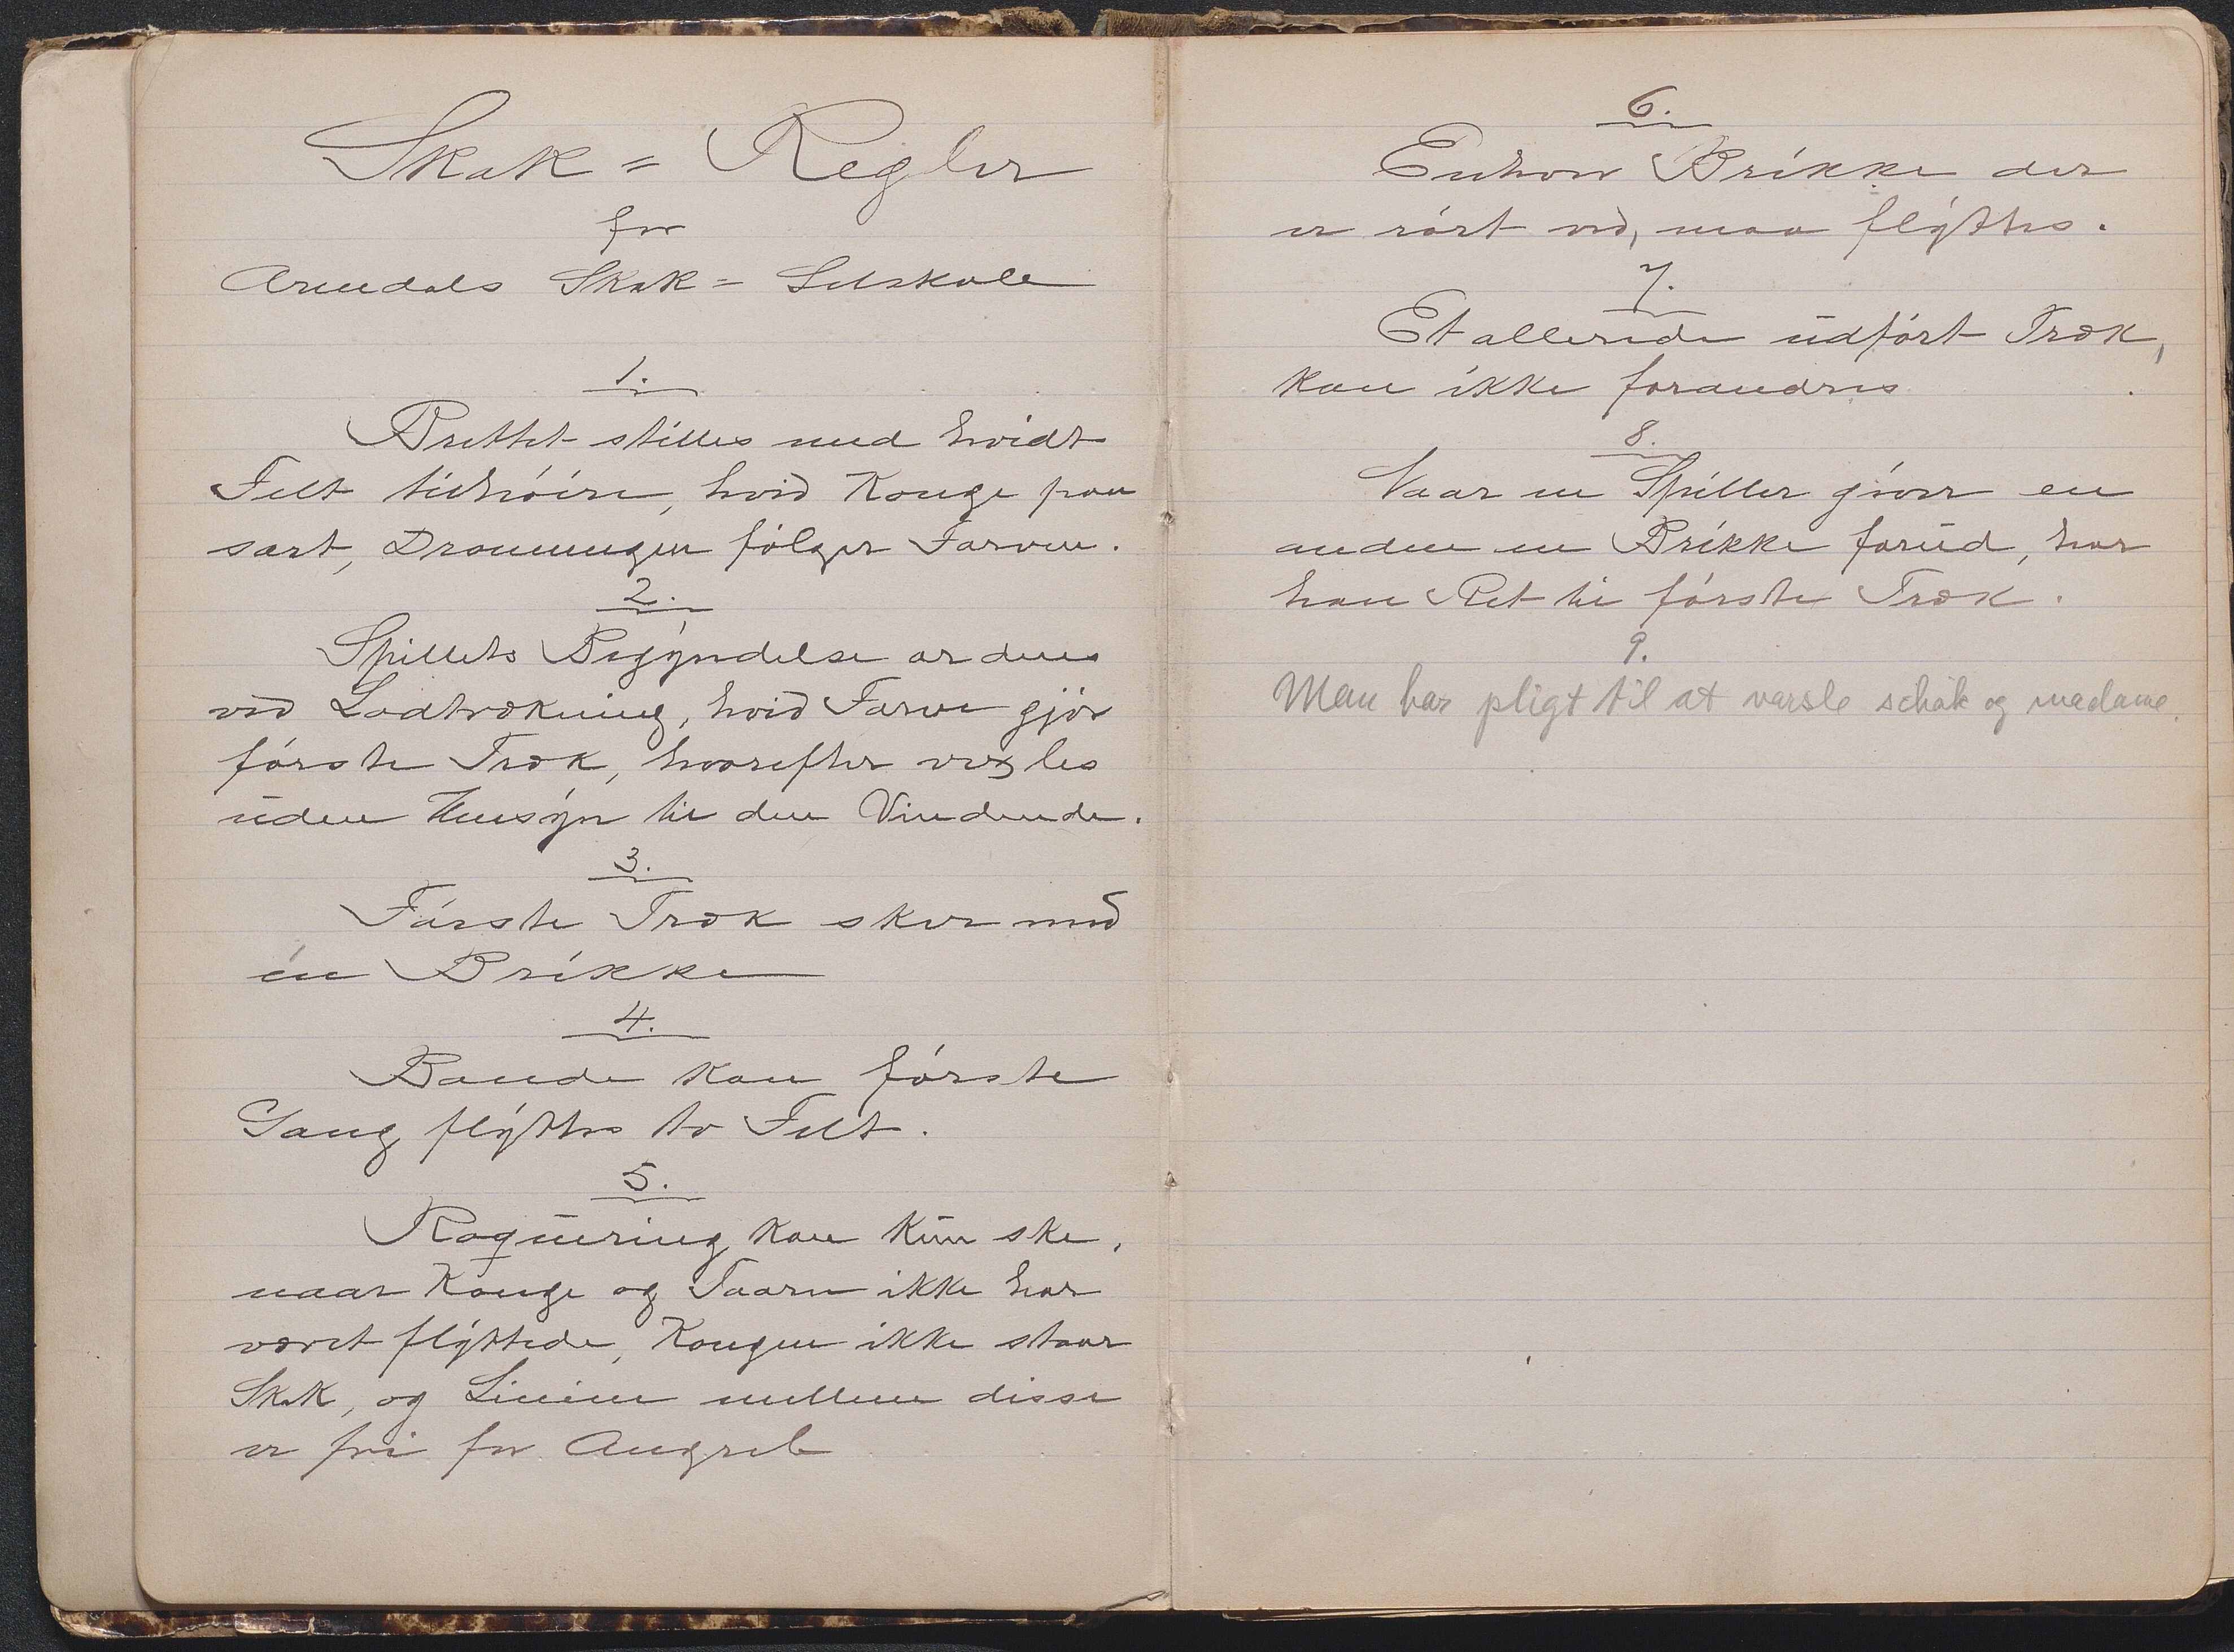 Skak = Regler
for
Arendals Skak = Selskab
1.
Brettet stilles med hvidt
Felt tilhöire, hvid Konge paa
sort, Dronningen fölger Farven.
2.
Spillets Begyndelse ordnes
ved Lodtrækning, hvid Farve gjör
förste Træk, hvorefter vexles
uden Hensyn til den Vindende.
3.
Förste Træk sker med
én Brikke
4.
Bonde kan förste
Gang flyttes to Felt.
5.
Roquering kan kun ske,
naar Konge og Taarn ikke har
været flyttede, Kongen ikke staar
Skak, og Linien mellem disse
er fri for Angreb
6.
Enhver Brikke der
er rört ved, maa flyttes.
7.
Et allerede udfört Træk,
kan ikke forandres
8.
Naar en Spiller giver en
anden en Brikke forud, har
han Ret til förste Træk.
9.
Man har pligt til at varsle schak og madame.